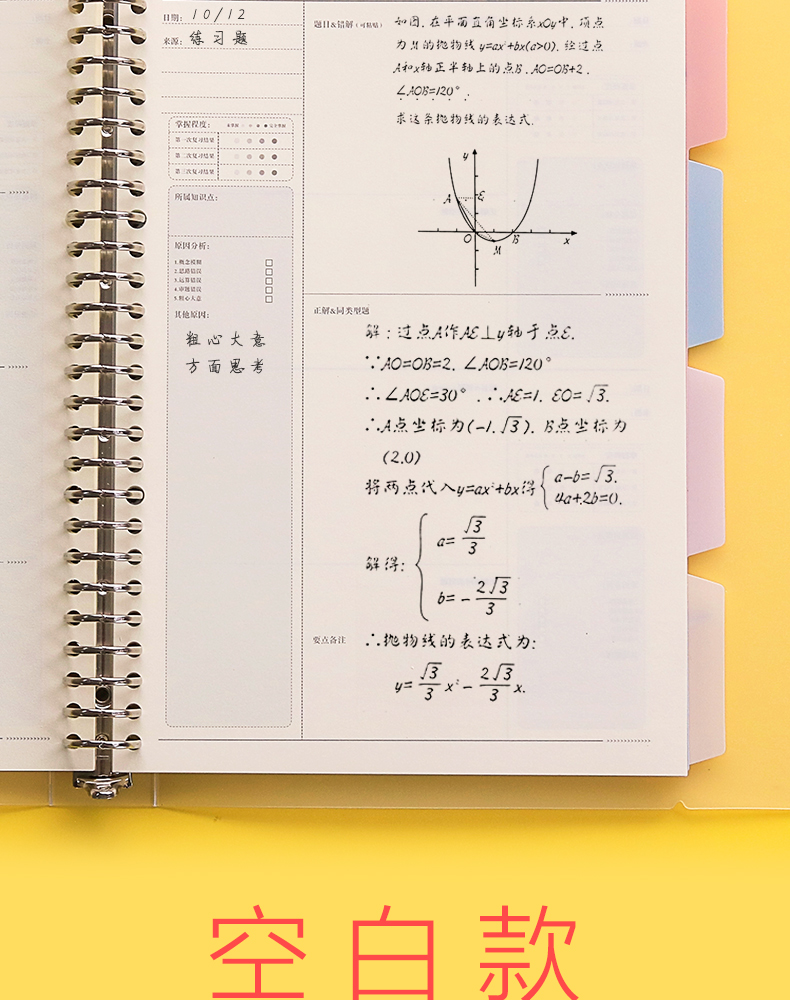 日期: 10/12
来源: 练习题
掌握程度:
第一次复习结果
第二次复习结果
第三次复习结果
所属知识点:
原因分析:
1.概念模糊
2.思路错误
3.运算错误
4.审题错误
5.粗心大意
其他原因:
粗心大意
方面思考
题目&错解(可粘贴)
如图.在平面直角坐标系xOy中.顶点
为M的抛物线y=ax²+bx(a>0).经过点
A和x轴正半轴上的点B.AO=OB+2.
∠AOB=120°.
求这条抛物线的表达式.
y
A
E
O
B
M
x
正解&同类型题
解:过点A作AE⊥y轴于点E.
∵AO=OB=2.∠AOB=120°
∴∠AOE=30°.∴AE=1.EO=√3.
∴A点坐标为(-1.√3).B点坐标为
(2.0)
将两点代入y=ax²+bx得{a-b=√3.
4a+2b=0.
解得:{a=√3/3
b=-2√3/3
要点备注
∴抛物线的表达式为:
y=√3/3x²-2√3/3x.
空白款